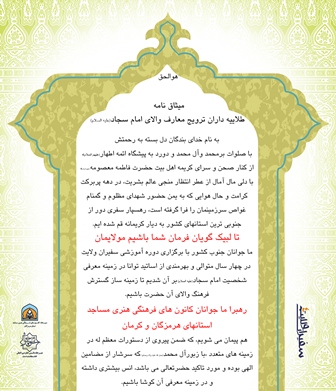 هوالحق
میثاق نامه
طلایه داران ترویج معارف والای امام سجاد(علیه السلام)
به نام خدای بندگان دل بسته به رحمتش
با صلوات برمحمد وآل محمد و دورد به پیشگاه ائمه اطهار
از کنار صحن و سرای کریمه اهل بیت حضرت فاطمه معصومه
با دلی مال آمال از عطر انتظار منجی عالم بشریت، در دهه پربرکت
کرامت و حال هوایی که به یمن حضور شهدای مظلوم و گمنام
غواص سرزمینمان را فرا گرفته است، رهسپار سفری دور از
جنوبی ترین استانهای کشور به دیار کریمانه قم شده ایم.
تا لبیک گویان فرمان شما باشیم مولایمان
ما جوانان جنوب کشور با برگزاری دوره آموزشی سفیران ولایت
در چهار سال متوالی و بهرمندی از اساتید توانا در زمینه معرفی
شخصیت امام سجاد بر آن شدیم تا زمینه ساز گسترش
فرهنگ والای آن حضرت باشیم.
رهبرا ما جوانان کانون های فرهنگی هنری مساجد
استانهای هرمزگان و کرمان
هم پیمان می شویم، که ضمن پیروی از دستورات معظم له در
زمینه های متعدد ،با زبورآل محمد که سرشار از مضامین
الهی بوده و مورد تاکید حضرتعالی می باشد، انس بیشتری داشته
و در زمینه معرفی آن کوشا باشیم.
سفیران ولایت